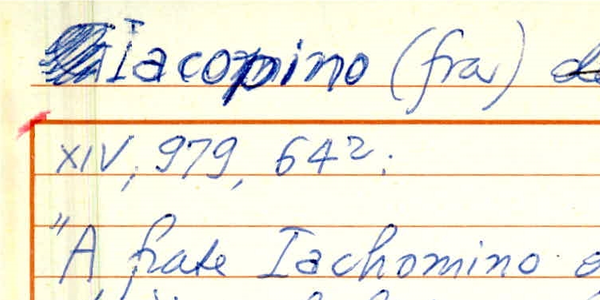 Iacopino (fra)
XIV, 979, 64²:
"A frate Iachomino